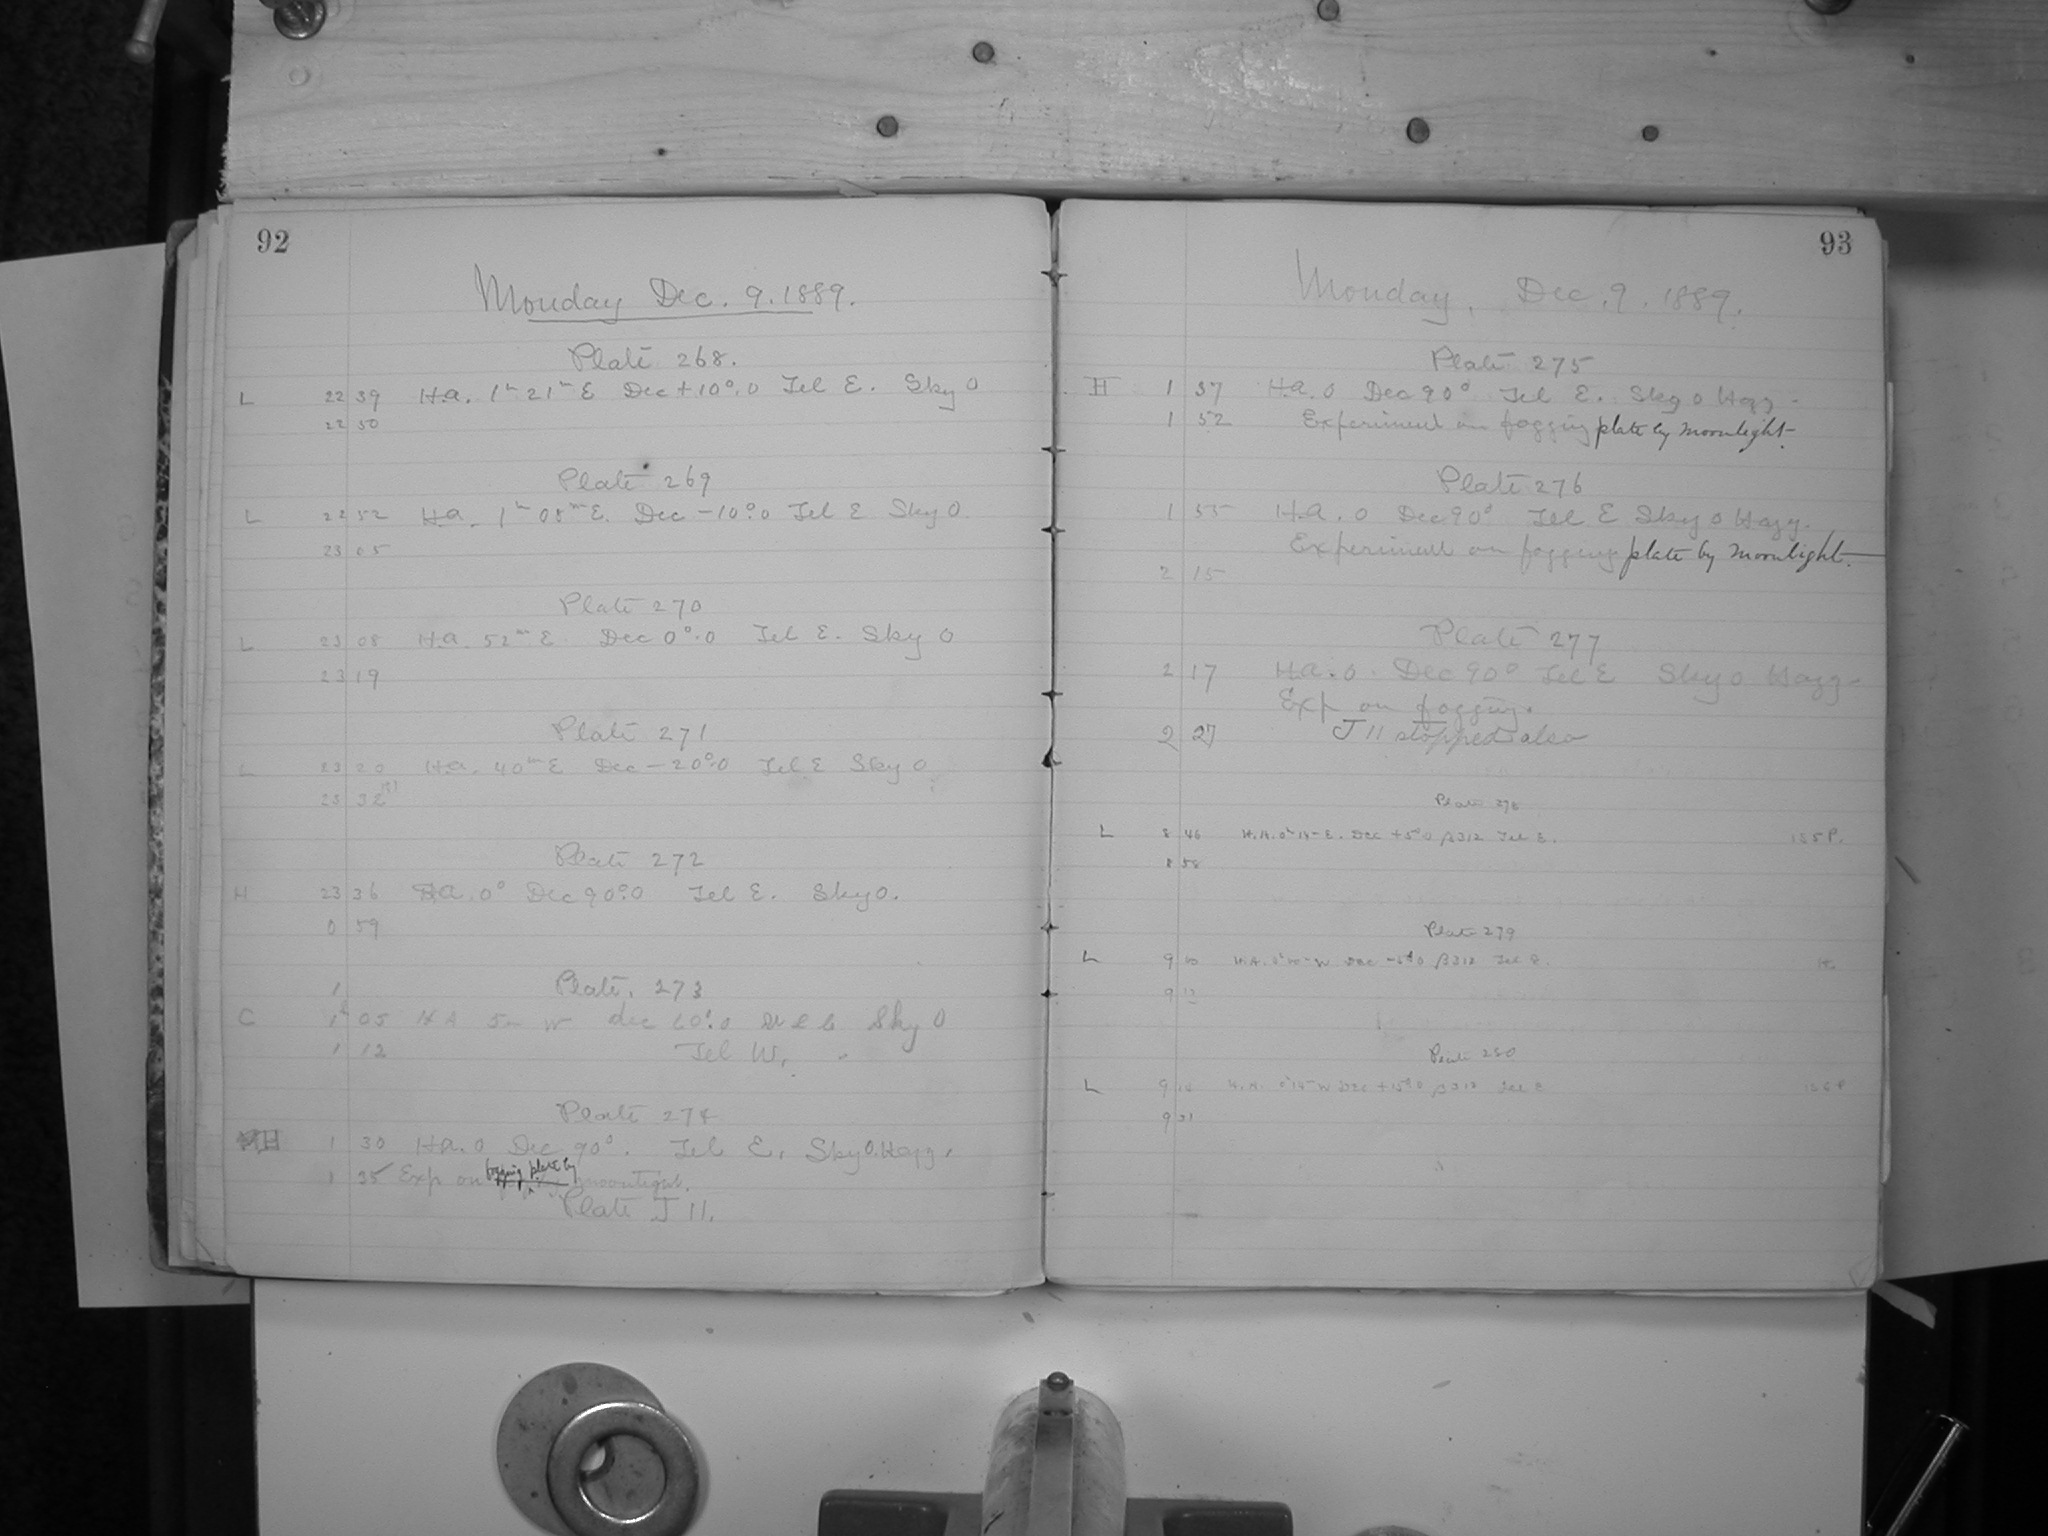 92
Monday Dec. 9. 1889.
Plate 268.
L 22 39 Ha. 1h 21m E Dec +10°.0 Tel E. Sky 0
22 50
Plate 269
L 22 52 Ha. 1h 08m E. Dec -10°.0 Tel E Sky 0
23 05
Plate 270
L 23 08 Ha. 52m E Dec 0°.0 Tel E. Sky 0
23 19
Plate 271
L 23 20 Ha. 40m E Dec -20°.0 Tel E Sky 0
23 32
Plate 272
H 23 36 Ha. 0° Dec 90°.0 Tel E. Sky 0.
0 59
Plate. 273
C 1h 05 HA 5m W dec 60°.0 Sky 0
1 12 Tel W.
Plate 274
H 1 30 Ha. 0 Dec 90°. Tel E. Sky 0. Hazy.
1 35 Exp on fogging plate by moonlight.
Plate J 11.
93
Monday, Dec. 9. 1889.
Plate 275
H 1 37 Ha. 0 Dec 90° Tel E. Sky 0 Hazy.
1 52 Experiment on fogging plate by moonlight.
Plate 276
1 55 Ha. 0 Dec 90° Tel E Sky 0 Hazy.
Experiment on fogging plate by moonlight.
2 15
Plate 277
2 17 Ha. 0. Dec 90° Tel E Sky 0 Hazy
Exp on fogging.
2 27 J 11 stopped also
Plate 278
L 8 46 H.A. Dec +5°.0 β312 Tel E.
8 58
Plate 279
L 9 H.A. W Dec β312 Tel E.
9
Plate 280
L 9 H.A. W Dec +15°.0 β312 Tel E
9 31